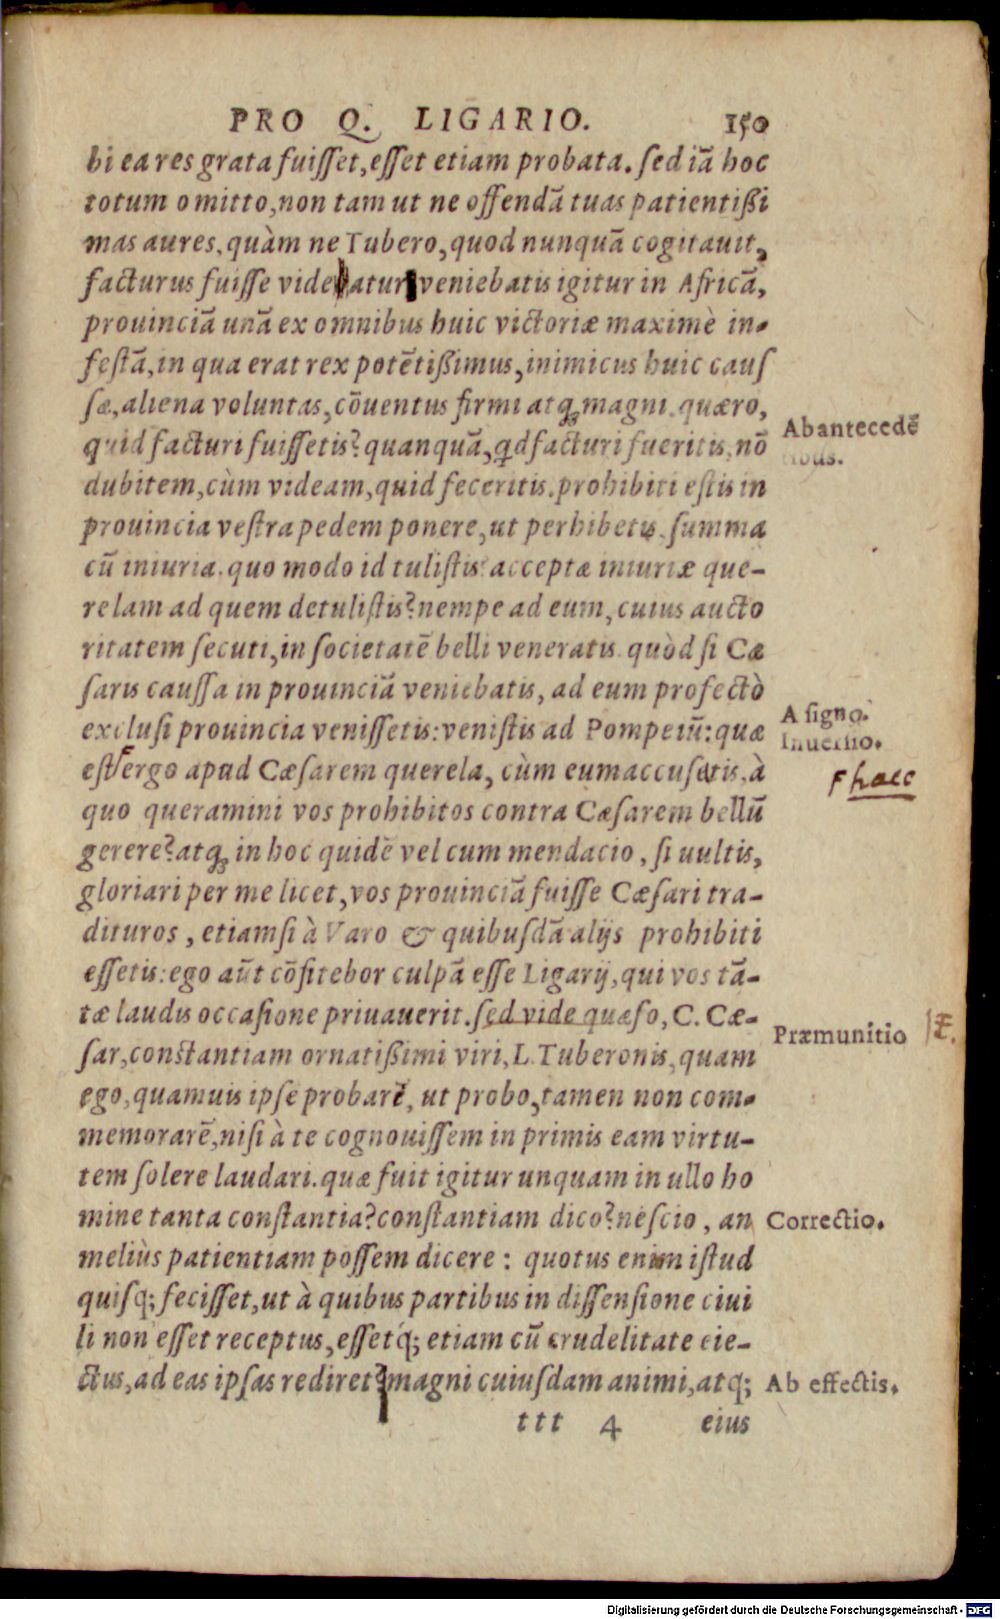 PRO Q. LIGARIO. 150
bi ea res grata fuiſſet, eſſet etiam probata. ſed iā hoc
totum omitto, non tam ut ne offendā tuas patientiſſi
mas aures, quàm ne Tubero, quod nunquā cogitauit,
facturus fuiſſe videatur veniebatis igitur in Africā,
prouinciā unā ex omnibus huic victoriæ maximè in-
feſtā, in qua erat rex potētiſſimus, inimicus huic cauſ
ſæ, aliena voluntas, cōuentus firmi atq; magni. quæro,
quid facturi fuiſſetis? quanquā, qd facturi fueritis, nō
Ab antecedē
tibus.
dubitem, cùm videam, quid feceritis. prohibiti eſtis in
prouincia veſtra pedem ponere, ut perhibetis, ſumma
cū iniuria. quo modo id tuliſtis? acceptæ iniuriæ que-
relam ad quem detuliſtis? nempe ad eum, cuius aucto
ritatem ſecuti, in ſocietatē belli veneratis. quòd ſi Cæ
ſaris cauſſa in prouinciā veniebatis, ad eum profectò
excluſi prouincia veniſſetis: veniſtis ad Pompeiū: quæ
A ſigno.
Inuerſio.
eſt ergo apud Cæſarem querela, cùm eum accuſetis, à
F haec
quo queramini vos prohibitos contra Cæſarem bellū
gerere? atq; in hoc quidē vel cum mendacio, ſi uultis,
gloriari per me licet, vos prouinciā fuiſſe Cæſari tra-
dituros, etiamſi à Varo & quibuſdā alijs prohibiti
eſſetis: ego aūt cōfitebor culpā eſſe Ligarij, qui vos tā-
tæ laudis occaſione priuauerit. ſed vide quæſo, C. Cæ-
Præmunitio
ſar, conſtantiam ornatiſſimi viri, L. Tuberonis, quam
ego, quamuis ipſe probarē, ut probo, tamen non com-
memorarē, niſi à te cognouiſſem in primis eam virtu-
tem ſolere laudari. quæ fuit igitur unquam in ullo ho
mine tanta conſtantia? conſtantiam dico? neſcio, an
Correctio.
meliùs patientiam poſſem dicere: quotus enim iſtud
quiſq; feciſſet, ut à quibus partibus in diſſenſione ciui
li non eſſet receptus, eſſetq́; etiam cū crudelitate eie-
ctus, ad eas ipſas rediret? magni cuiuſdam animi, atq;
Ab effectis.
ttt 4 eius
Digitalisierung gefördert durch die Deutsche Forschungsgemeinschaft - DFG